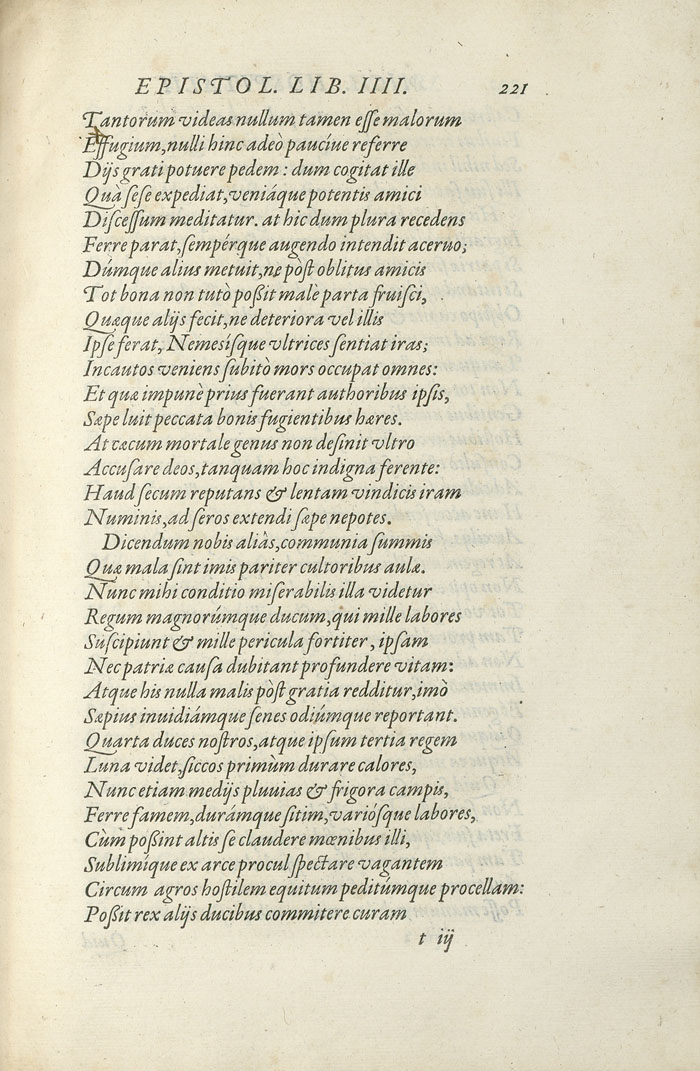 EPISTOL. LIB. IIII. 221
Tantorum videas nullum tamen eſſe malorum
Effugium, nulli hinc adeò paucíue referre
Dijs grati potuere pedem : dum cogitat ille
Quà ſeſe expediat, veniáque potentis amici
Diſceſſum meditatur. at hic dum plura recedens
Ferre parat, ſempérque augendo intendit aceruo;
Dúmque alius metuit, ne pòſt oblitus amicis
Tot bona non tutò poßit malè parta fruiſci,
Quæque alijs fecit, ne deteriora vel illis
Ipſe ferat, Nemesíſque vltrices ſentiat iras;
Incautos veniens ſubitò mors occupat omnes:
Et quæ impunè prius fuerant authoribus ipſis,
Sæpe luit peccata bonis fugientibus hæres.
At cæcum mortale genus non deſinit vltro
Accuſare deos, tanquam hoc indigna ferente:
Haud ſecum reputans & lentam vindicis iram
Numinis, ad ſeros extendi ſæpe nepotes.
Dicendum nobis aliàs, communia ſummis
Quæ mala ſint imis pariter cultoribus aulæ.
Nunc mihi conditio miſerabilis illa videtur
Regum magnorúmque ducum, qui mille labores
Suſcipiunt & mille pericula fortiter, ipſam
Nec patriæ cauſa dubitant profundere vitam:
Atque his nulla malis pòſt gratia redditur, imò
Sæpius inuidiámque ſenes odiúmque reportant.
Quarta duces noſtros, atque ipſum tertia regem
Luna videt, ſiccos primùm durare calores,
Nunc etiam medijs pluuias & frigora campis,
Ferre famem, durámque ſitim, varióſque labores,
Cùm poßint altis ſe claudere mœnibus illi,
Sublimíque ex arce procul ſpectare vagantem
Circum agros hoſtilem equitum peditúmque procellam:
Poßit rex alijs ducibus commitere curam
t iij